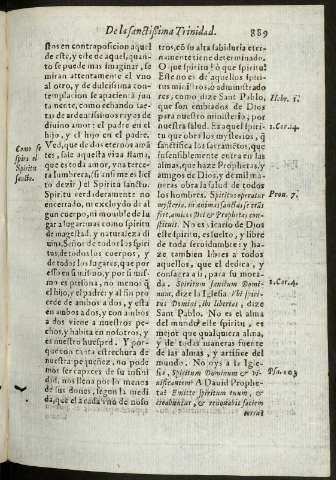 De la sanctissima Trinidad. 889
stos en contraposicion aquel
de este, y este de aquel, quan-
to se puede mas imaginar, se
miran attentamente el vno
al otro, y de dulcissima con-
templacion se apacientan jun
tamente, como echando sae-
tas de ardentissimos rayes de
diuino amor: el padre en el
hijo, y el hijo en el padre.
Ved, que de dos eternos ama
tes, sale aquesta viua llama,
que es aquel amor, y na terce
ra lumbrera, si ansi me es lici
to dezir) el Spiritu sancto.
Spiritu verdaderamente no
encerrado, ni excluydo de al
gun cuerpo, ni mouible de lu
gar a lugar: mas como spiritu
de magestad, y naturaleza di
uina, Señor de todos los spiri
tus, de todos los cuerpos, y
de todos los lugares, que por
esso en si mismo, y por si mis-
mo es persona, no menos que
el hijo, y el padre: y assi pro
cede de ambos a dos, y esta
en ambos a dos, y con ambos
a dos viene a nuestros pe-
chos, y habita en nosotros, y
es nuestro huesped. Y por-
que con tanta estrechura de
nuestra pequeñez, no pode
mos ser capaces de su infini
dad, nos llena por lo menos
de sus dones, segun la medi
da, que el a cada vno de noso
Como se
spira el
Spiritu
sancto.
tros, cõ su alta sabiduria eter-
namente tiene determinado.
O que spiritu! ò que spiritu!
Este no es de aquellos spiri-
tus ministros, ò administrado
res, como dize Sant Pablo,
que son embiados de Dios
para nuestro ministerio, por
nuestra salud. Es aquel spiri-
tu que obra los mysterios, q̃
sanctifica los sacramẽtos, que
inuisiblemente entra en las
almas, que haze Prophetas, y
amigos de Dios, y de mil ma-
neres obra la salud de todos
los hombres. Spiritus operatur
mysteria. in animas sanctas se trãs
fert, amicos Dei & Prophetas con-
stituit. No es vicario de Dios
este spiritu, es suelto, y libre
de toda seruidumbre: y ha-
ze tambien libres a todos
aquellos, que el dedica, y
consagra a si, para su mora-
da. Spiritum sanctum Domi-
num, dize la Iglesia. Vbi spiri-
tus Domini, ibi libertas, dize
Sant Pablo. No es el alma
del mundo este spiritu, es
mejor que qualquiera alma,
y de todas maneras fuente
de las almas, y artifice del
mundo. No oys a la Igle-
sia, Spiritum Dominum & vi-
uificantem? A Dauid Prophe-
ta? Emitte spiritum tuum, &
creabuntur, & renouabis faciem
terræ
Hebr. 1.
1.Cor.14.
Prou. 7.
2.Cor.4.
Psa.103